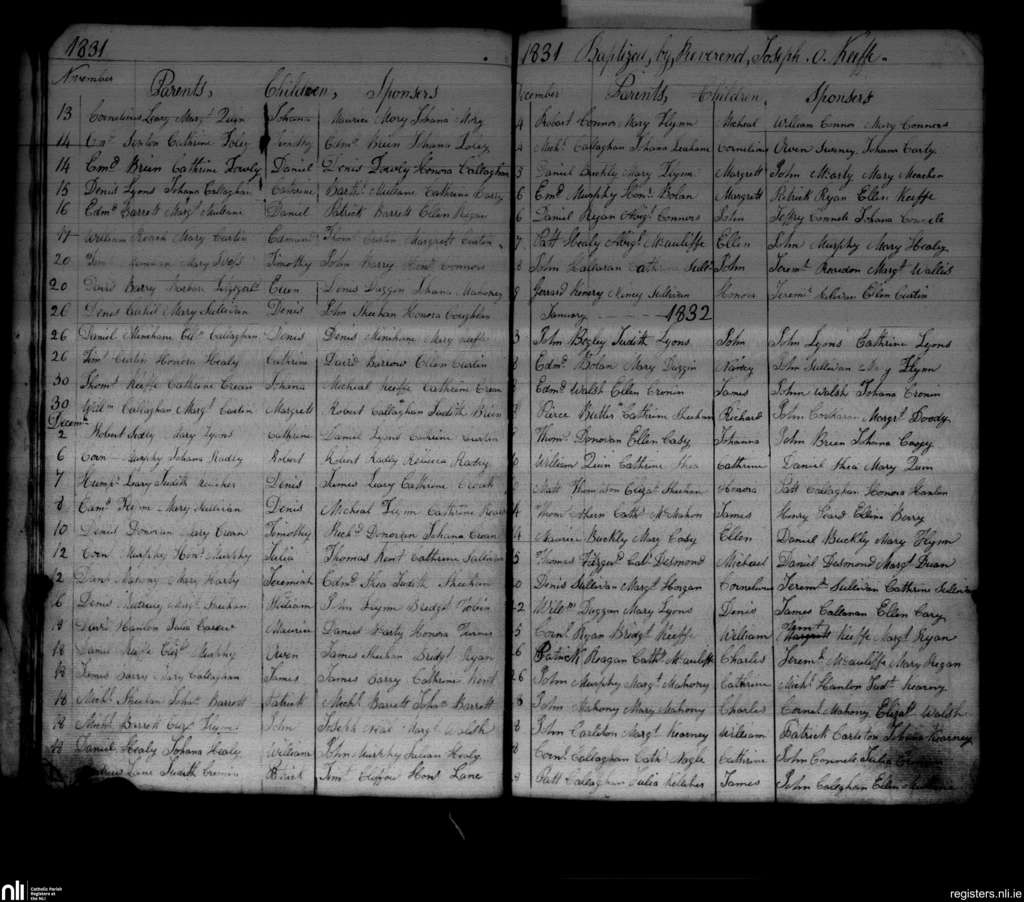 1831
November
Parents, Children, Sponsers
13 Cornelius Leary Margt Quin Johana Maurice Mory Johana Mory
14 Wm Sexton Cathrine Foley Timothy Edmd Brien Johana Foley
14 Emd Brien Cathrine Dowly Daniel Denis Dowly Honora Callaghan
15 Denis Lyons Johana Callaghan Cathrine Barthw Mullane Cathrine Barry
16 Edmd Barrett Margt Mullane Daniel Patrick Barrett Ellen Regan
17 William Roach Mary Curtin Edmund Thomas Curtin Margrett Curtin
20 Timothy John Barry Connors
20 David Barry Barbara Fitzgerald Ellen Denis Duggan Johana Mahoney
26 Denis Mary Sullivan Denis John Sheehan Honora Coughlan
26 Daniel Minehane Elizt Callaghan Denis Denis Minehane Mary Keeffe
26 Timt Curtin Honora Healy Cathrine David Barrow Ellen Curtin
30 Thomt Keeffe Cathrine Crean Johana Micheal Keeffe Cathrine Crean
30 Willm Callaghan Margt Curtin Margrett Robert Callaghan Judith Brien
Decemr
2 Robert Mary Lyons Cathrine Daniel Lyons Cathrine
6 Corn Murphy Johana Radley Robert Robert Radley Rebecca Radley
7 Humpt Leary Judith Denis James Leary Cathrine
8 Flynn Mary Sullivan Denis Micheal Flynn Cathrine
10 Denis Donovan Mary Crean Timothy Richd Donovan Johana Crean
12 Corn Murphy Honr Murphy Julia Thomas Kent Cathrine Sullivan
12 Danl Mahony Mary Jeremiah Edmd Shea Judith Sheehan
16 Denis Margt Sheehan William John Flynn Bridgt Tobin
18 David Hanlon Julia Carew Maurice Daniel Honora
18 Daniel Keeffe Elizt Murphy Owen James Sheehan Bridgt Ryan
18 James Barry Mary Callaghan James James Barry Cathrine Kent
18 Michl Sheehan Johana Barrett Patrick Michl Barrett Johana Barrett
18 Michl Barrett Elizt Flynn John Joseph Neal Margt Walsh
18 Daniel Healy Johana Healy William John Murphy Julian Healy
Lane Judith Cremin Honr Lane
1831 Baptized, by, Reverend, Joseph. O. Keeffe.
December Parents, Children, Sponsers
4 Robart Connor Mary Flynn Micheal William Connor Mary Connors
4 Michl Callaghan Johana Leahane Cornelius Owen Sweney Johana Carty
3 Daniel Buckly Mary Flynn Margrett John Marly Mary Meachen
6 Emd Murphy Honr Bolan Margrett Patrick Ryan Ellen Keeffe
6 Daniel Regan Abigt Connors John Jeffry Connell Johana Connell
7 Patt Healy Abigt McAuliffe Ellen John Murphy Mary Healy
8 John Halloran Cathrine Sullivan John Jeremt Reardon Margt Wallis
9 Gerrard Kinery Nancy Sullivan Honora Jeremt Sulivan Ellen Curtin
January 1832
3 John Begley Judith Lyons John John Lyons Cathrine Lyons
8 Edmd Bolan Mary Duggin Nancy John Sullivan Mary Flynn
8 Edmd Walsh Ellen Cronin James John Walsh Johana Cronin
8 Pierce Butler Cathrine Sheehan Richard John Corkaran Margt Doody
Thomt Donovan Ellen Casy Johanna John Brien Johana Casey
10 William Quin Cathrine Shea Cathrine Daniel Shea Mary Quin
Matt Thomison Elizat Sheehan Honora Patt Callaghan Honora Hanlon
14 Thomt Ahern Cathr McMahon James Henry Peard Ellen Berry
14 Maurice Buckley Mary Cody Ellen Daniel Buckley Mary Flynn
15 Thomas Fitzgerd Catr Desmond Micheael Daniel Desmond Margt Duan
20 Denis Sullivan Margt Horgan Cornelius Jeremt Sullivan Cathrine Sullivan
22 Willm Duggan Mary Lyons Denis James Callanan Ellen Cary
25 Cornl Ryan Bridgt Keeffe William Timt Keeffe Margt Ryan
26 Patrick Reagan Catht McAuliffe Charles Jeremh McAuliffe Mary Regan
26 John Murphy Margt Mahony Cathrine Michl Hanlon Judt Kearny
28 John Mahony Mary Mahony Charles Cornel Mahony Elizat Walsh
28 John Carleton Margt Kearney William Patrick Carleton Johana Kearney
28 Cornl Callaghan Cath Nagle Cathrine John Connell Julia
28 Patt Callaghan Julia Keliher James John Calaghan Ellen
nli Catholic Parish Registers at the NLI
registers.nli.ie